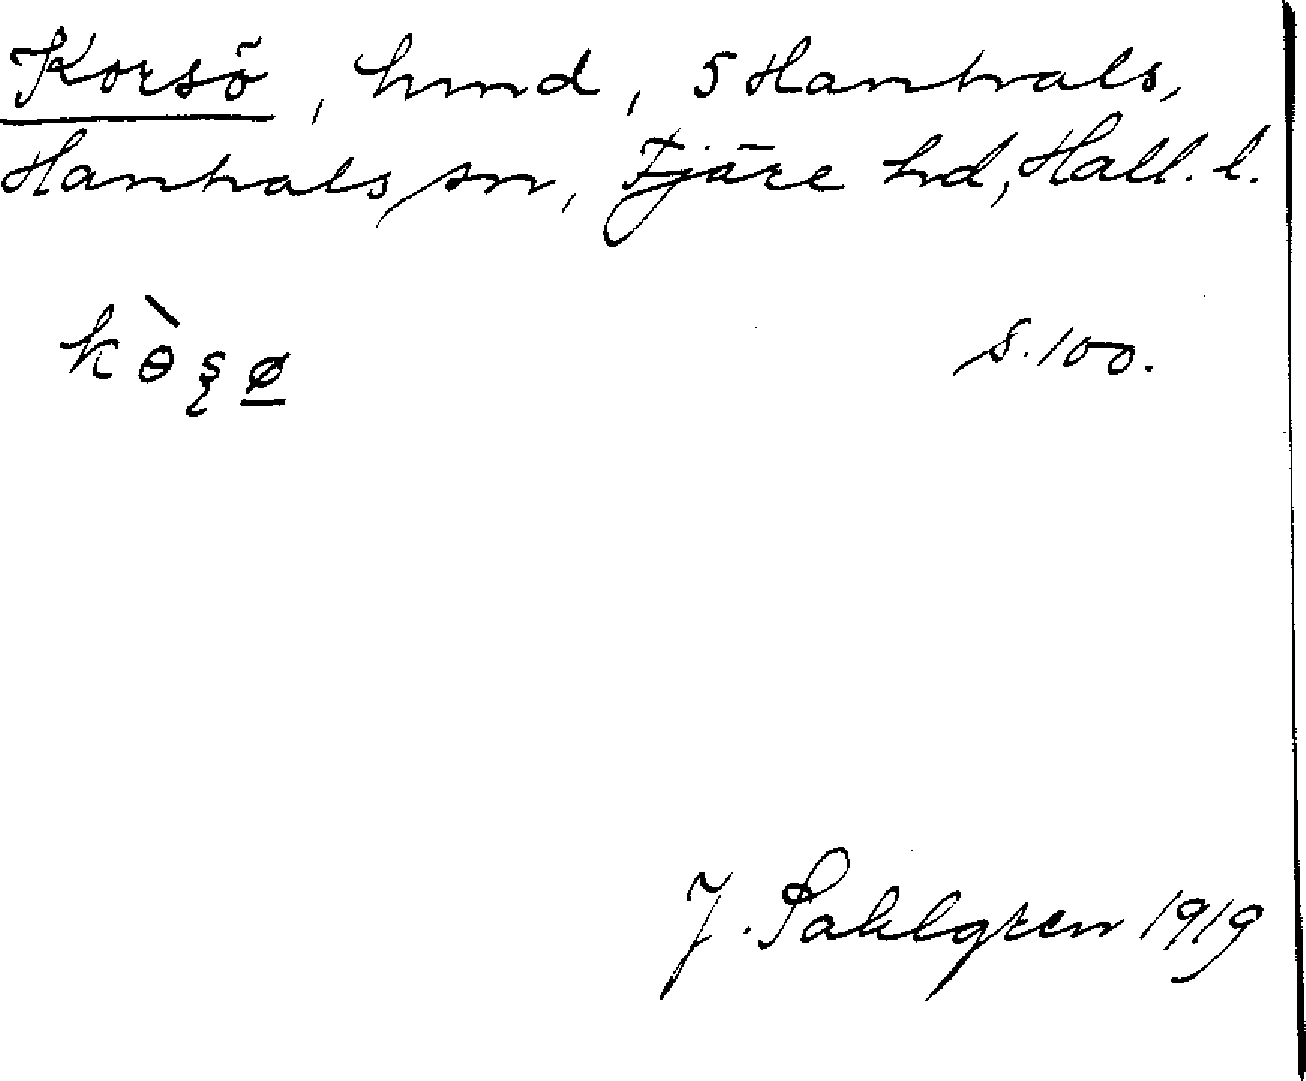 Korsö, hmd, 5 Hanhals,
Hanhals sn, Fjäre hd, Hall. l.
kὸʂø s. 100.
J. Sahlgren 1919